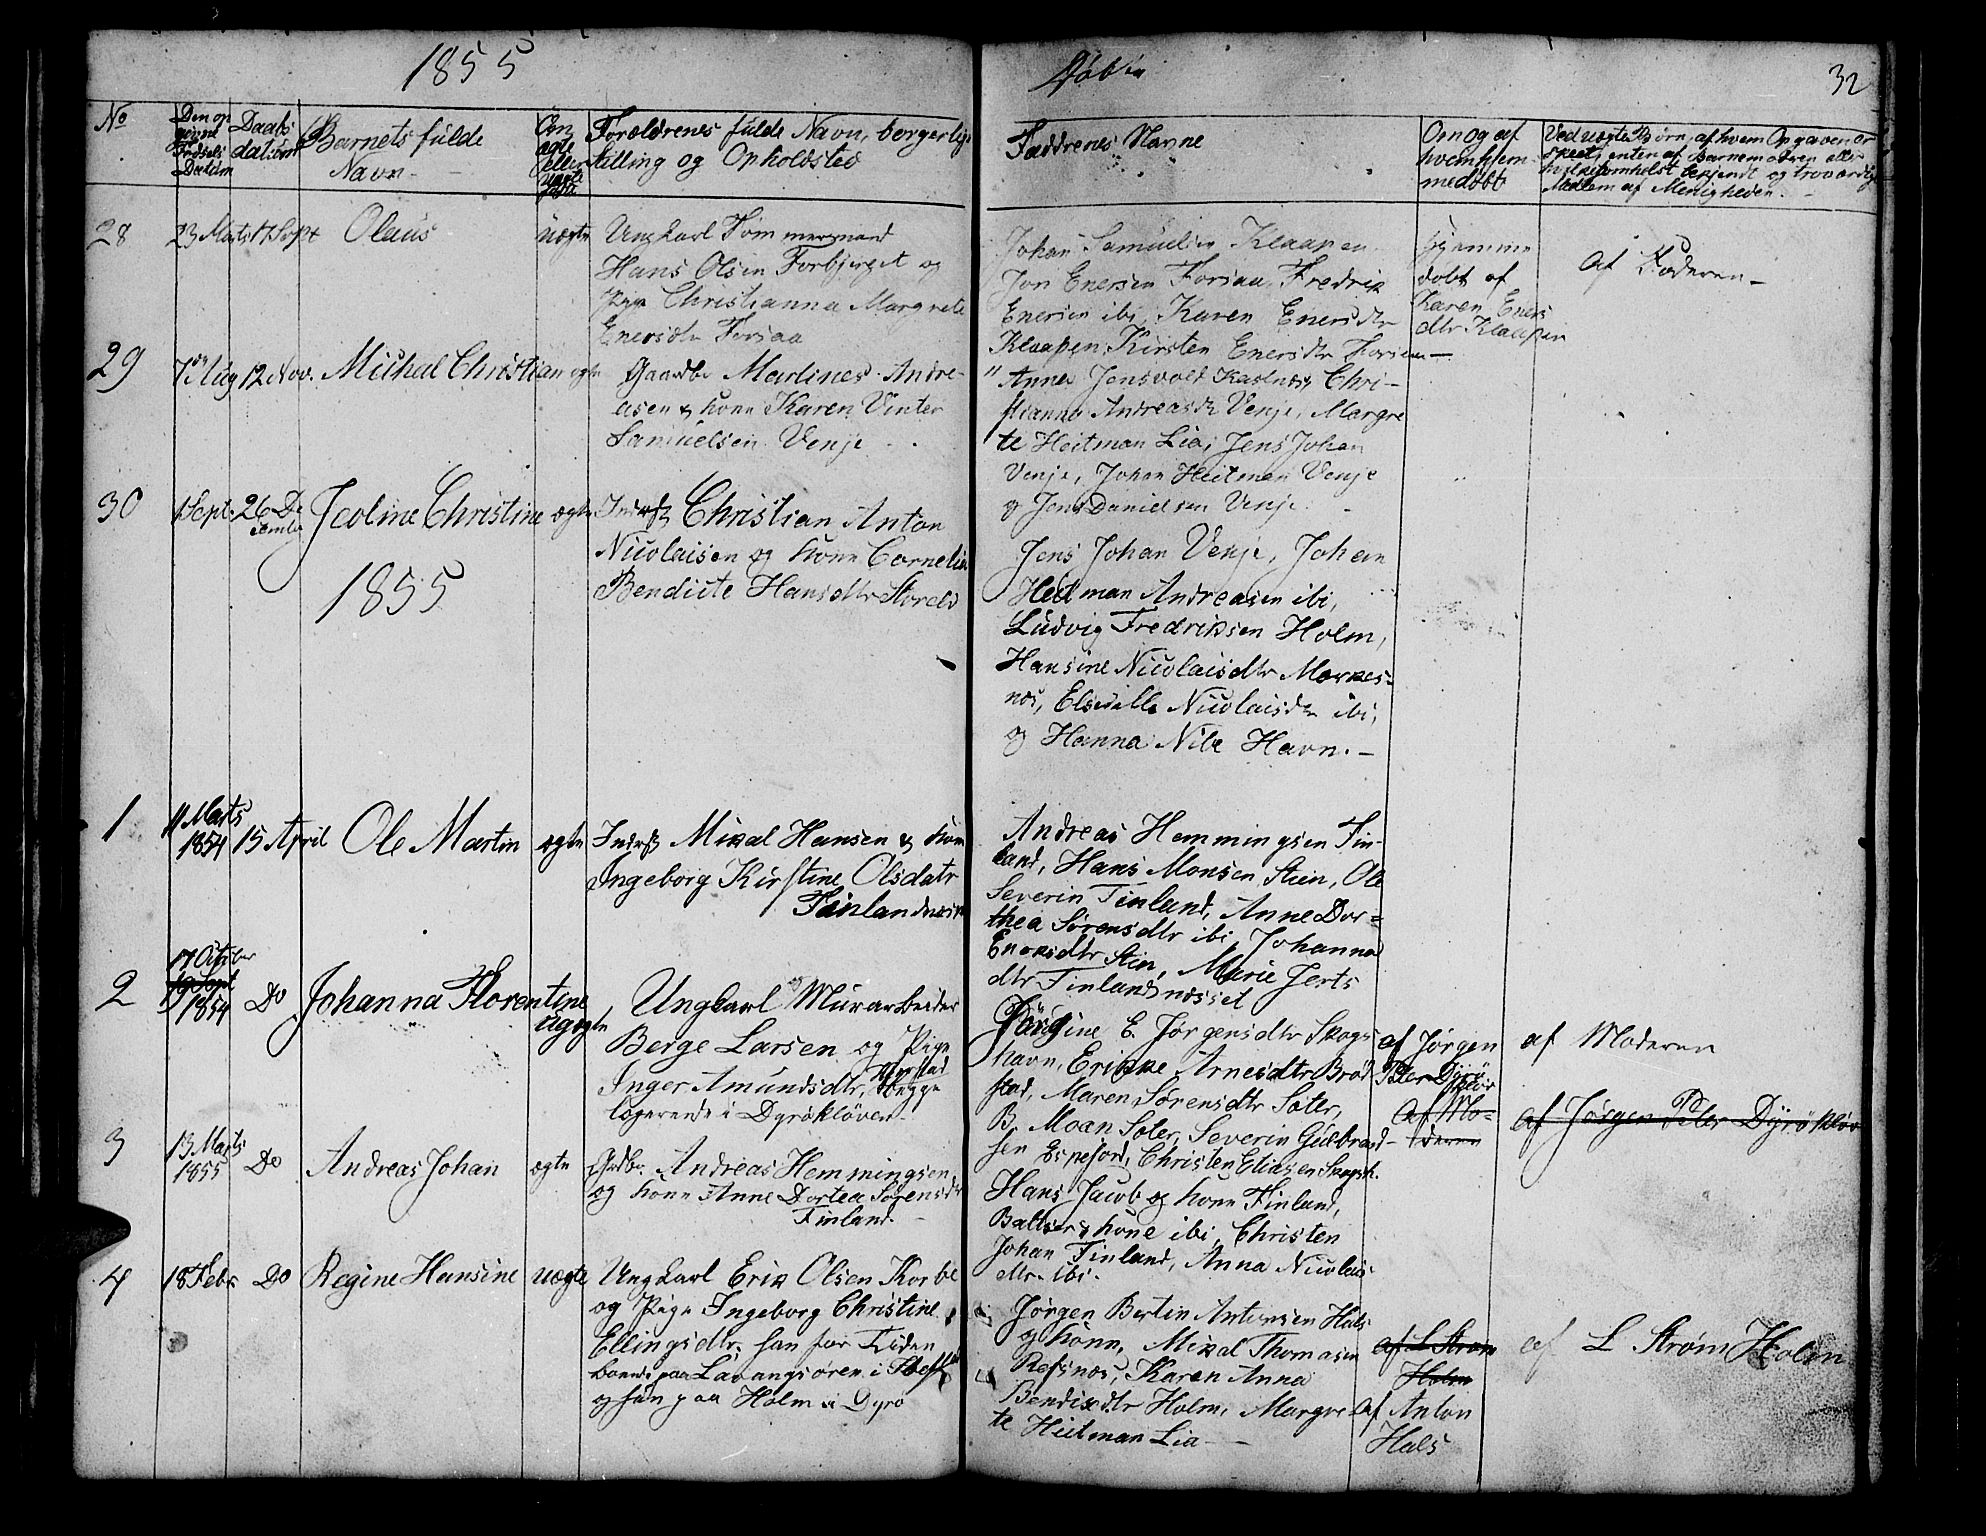 1855
Døbte
32
No
Den op
givne
Fødsels
Datum
Daabs
datum
Barnets fulde
Navn
Om
ægte
eller
uægte
Forældrenes fulde Navn, borgerlig
stilling og Opholdsted
Faddrenes Navne
Om og af
hvem hjem
medøbt
Ved uægte Børn, af hvem Opgaven er
skeet, enten af Barnemoderen eller
hvilkesomhelst bekjendt og troværdig
Medlem af Menigheden.
28
23 Marts 17 Sept
Olaus
uægte
Ungkarl Tømmermand
Hans Olsen Forbjerget og
Pige Christianna Margrete
Enersdtr Forsaa
Johan Samuelsen Klaapen
Jon Enersen Forsaa, Fredrik
Enersen ibi, Karen Enersdtr
Klaapen, Kirsten Enersdtr Forsaa
hjemme
døbt af
Karen Eners
dtr Klaapen
af Faderen
29
7de Aug 12 Nov.
Michal Christian
ægte
Gaardbr Martines Andre-
asen & kone Karen Vinter
Samuelsen Venje
Anne Jensvold Kastnes, Chri-
stianna Andreasdtr Venje, Margre
te Heitman Lia, Jens Johan
Venje, Johan Heitman Venje
og Jens Danielsen Venje
30
1 Sept. 26 De
cember
Jeoline Christine
ægte
Inderst Christian Anton
Nicolaisen og kone Cornelia
Bendicte Hansdtr Storeld
Jens Johan Venje, Johan
Heitman Andreasen ibi,
Ludvig Fredriksen Holm,
Hansine Nicolaisdtr Morkes-
nes, Elseville Nicolaisdtr ibi,
og Hanna Nibe Havn.
1855
1
11 Marts
1854
15 April
Ole Martin
ægte
Inderst Mikal Hansen & kone
Ingeborg Kirstine Olsdatr
Finlandnæsset
Andreas Hemmingsen Fin-
land, Hans Monsen Stien, Ole
Severin Finland, Anne Dor=
thea Sørensdtr ibi, Johanna
Enoksdtr Stien, Marie Jerts
dtr Finlandnæsset
2
17 October
19 Sept
1854
Do
Johanna Florentine
uægte
Ungkarl Murarbeider
Berge Larsen og Pige
Inger Amundsdtr, begge
logerende i Dyrøkløven
E. Jørgensdtr Skogs
havn, Erikke Arnesdtr Brød
stad, Maren Sørensdtr Søter,
B. Moan Søter, Severin Gulbrand-
sen Espejord, Christen Eliasen Skogsh.
af Jørgen
Peter Dyrø
kløv
af Mo=
deren
af Moderen
af Jørgen Peter Dyrøkløv
3
13 Marts
1855
Do
Andreas Johan
ægte
Gdbr. Andreas Hemmingsen
og kone Anne Dortea Sørensdtr
Finland.
Hans Jacob og kone Finland,
Baltser & kone ibi, Christen
Johan Finland, Anna Nicolais
dtr ibi.
4
18 Febr
Do
Regine Hansine
uægte
Ungkarl Erik Olsen Korbe
og Pige Ingeborg Christine
Ellingsdtr, han for Tiden
boende paa Lavangsøren i
og hun paa Holm i Dyrø
Jørgen Bertin Antonsen Hals
og kone, Mikal Thomasen
Refsnes, Karen Anna
Bendixdtr Holm, Margre
te Heitman Lia
af L Strøm
Holm
af Anton
Hals
af L Strøm Holm